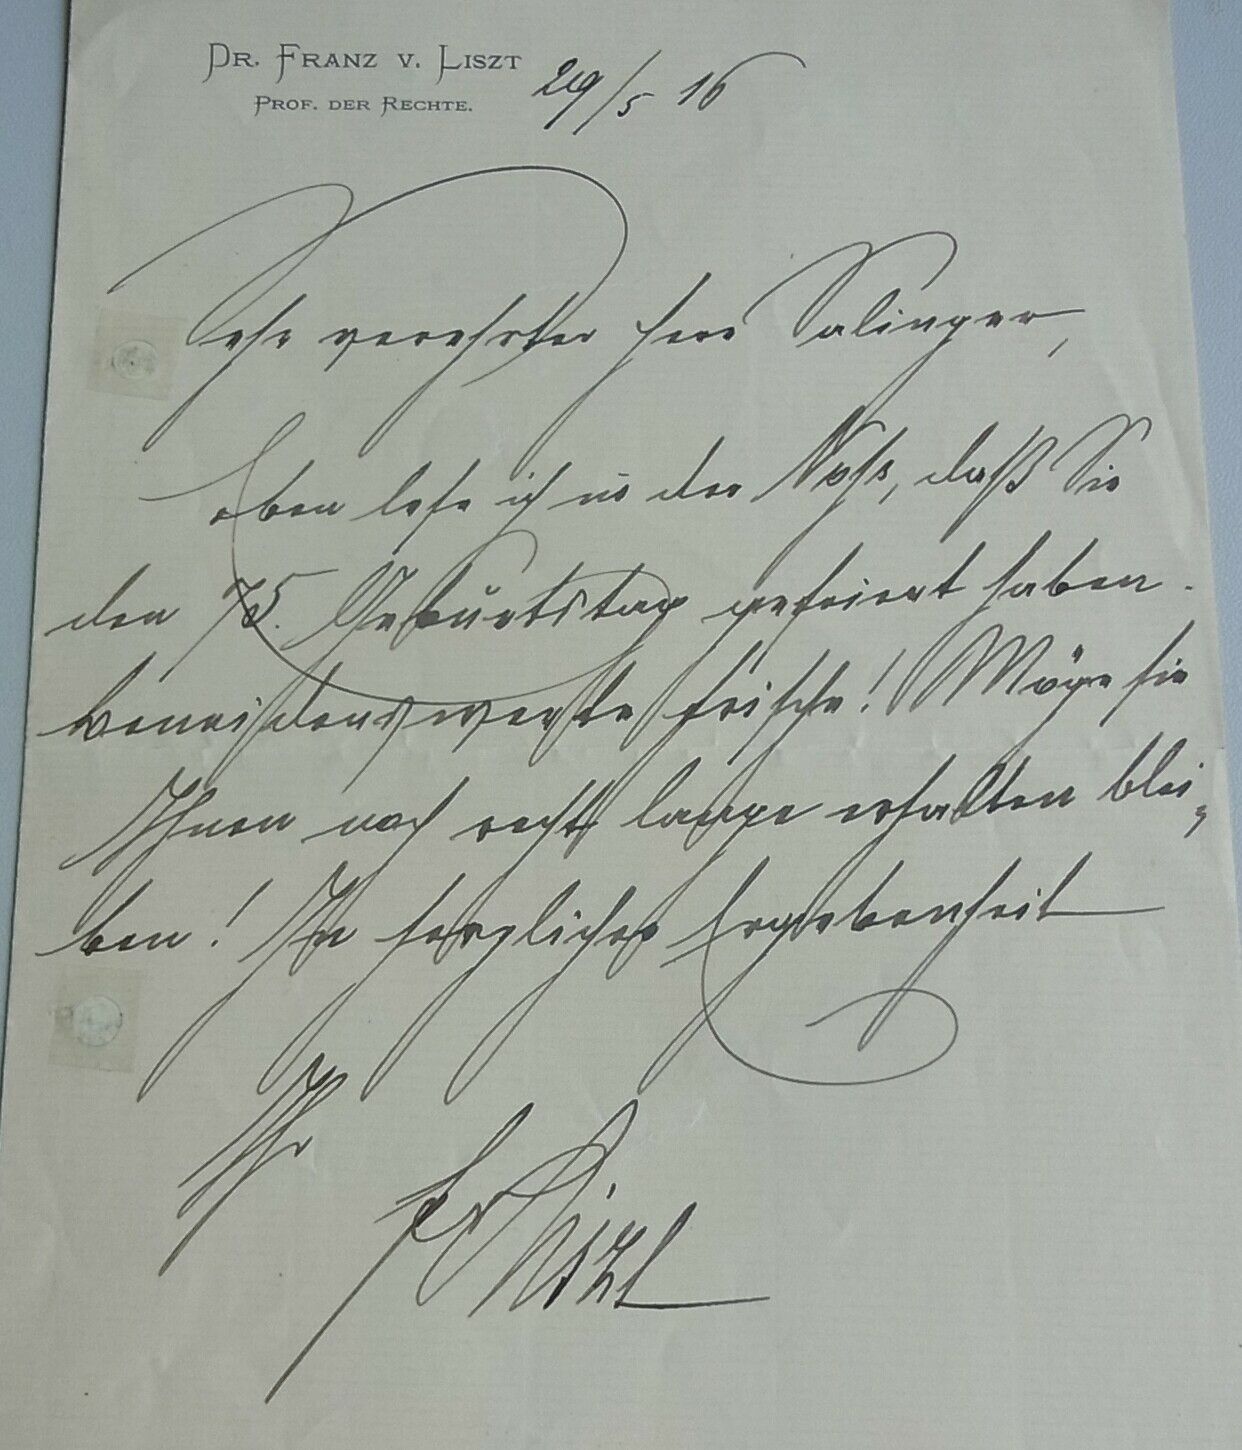 DR. FRANZ V. LISZT
PROF. DER RECHTE.
29/5 16
Sehr verehrter Herr Salinger,
Eben lese ich in der Voss, daß Sie
den 75. Geburtstag gefeiert haben.
Beneidenswerte Frische! Möge sie
Ihnen noch recht lange erhalten blei-
ben! In herzlicher Ergebenheit
Ihr
Fr Liszt